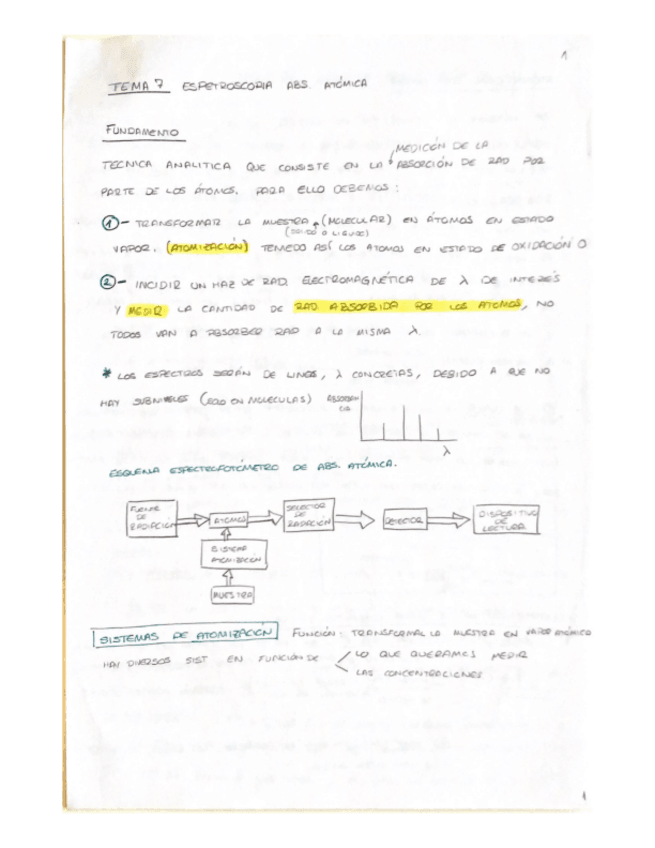 1
TEMA 7 ESPETROSCOPIA ABS. ATÓMICA
FUNDAMENTO
MEDICIÓN DE LA
TECNICA ANALITICA QUE CONSISTE EN LA ABSORCIÓN DE RAD POR
PARTE DE LOS ÁTOMOS. PARA ELLO DEBEMOS:
① - TRANSFORMAR LA MUESTRA (MOLECULAR) EN ÁTOMOS EN ESTADO
(SOLIDO O LIQUIDO)
VAPOR. (ATOMIZACIÓN) TENIEDO ASÍ LOS ATOMOS EN ESTADO DE OXIDACIÓN 0
② - INCIDIR UN HAZ DE RAD. ELECTROMAGNÉTICA DE λ DE INTERÉS
Y MEDIR LA CANTIDAD DE RAD. ABSORBIDA POR LOS ATOMOS, NO
TODOS VAN A ABSORBER RAD A LA MISMA λ.
* LOS ESPECTROS SERÁN DE LINEAS, λ CONCRETAS, DEBIDO A QUE NO
HAY SUBNIVELES (ESO EN MOLECULAS) ABSORBAN
CIA
λ
ESQUEMA ESPECTROFOTÓMETRO DE ABS. ATÓMICA.
FUENTE
DE
RADIACIÓN
ATOMOS
SELECTOR
DE
RADIACIÓN
DETECTOR
DISPOSITIVO
DE
LECTURA
SISTEMA
ATOMIZACIÓN
MUESTRA
SISTEMAS DE ATOMIZACIÓN FUNCIÓN: TRANSFORMAR LA MUESTRA EN VAPOR ATÓMICO
HAY DIVERSOS SIST EN FUNCIÓN DE LO QUE QUERAMOS MEDIR
LAS CONCENTRACIONES